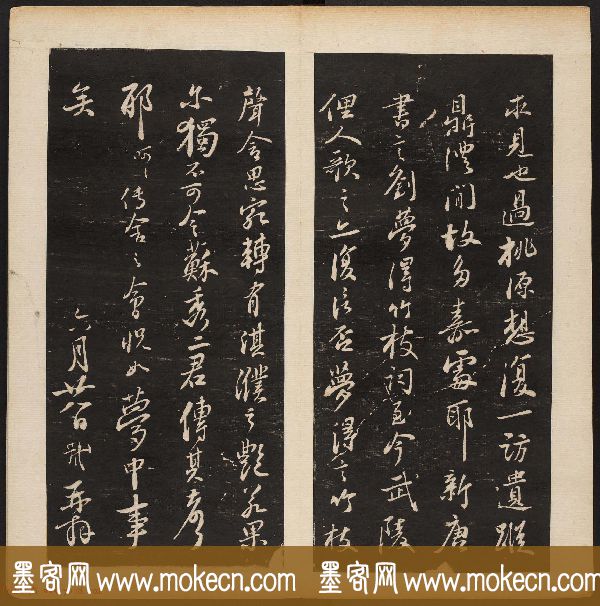 求見也過桃源想復一訪遺蹤
鼎澧間故多嘉處耶新唐
書言劉夢得竹枝詞至今武陵
俚人歌之亦復信否夢得言竹枝
聲含思宛轉有淇濮之艷若果
尔獨不可令蘇秀二君傳其音
耶呵呵傳舍之會恍如夢中事
矣
六月廿六日 再拜
墨客网 www.mokecn.com 墨客网 www.mokecn.com